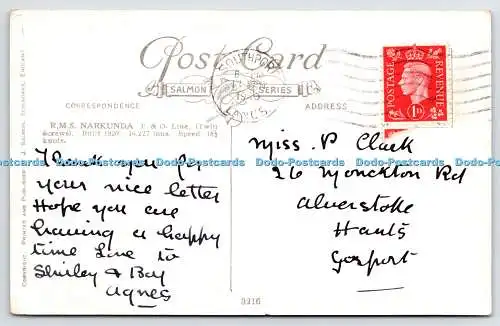 Post Card
SALMON SERIES
CORRESPONDENCE
ADDRESS
SOUTHPORT
LANCS.
POSTAGE
REVENUE
1D
R.M.S. NARKUNDA P. & O. Line, (Twin
Screws). Built 1920. 16,227 tons. Speed 18½
knots.
Thank you for
your nice letter
Hope you are
having a happy
time Love to
Shirley & Bay
Agnes
Miss P Clark
26 Monckton Rd
Alverstoke
Hants
Gosport
COPYRIGHT. PRINTED AND PUBLISHED BY J. SALMON, SEVENOAKS, ENGLAND
3916
Postcards www.Postcards